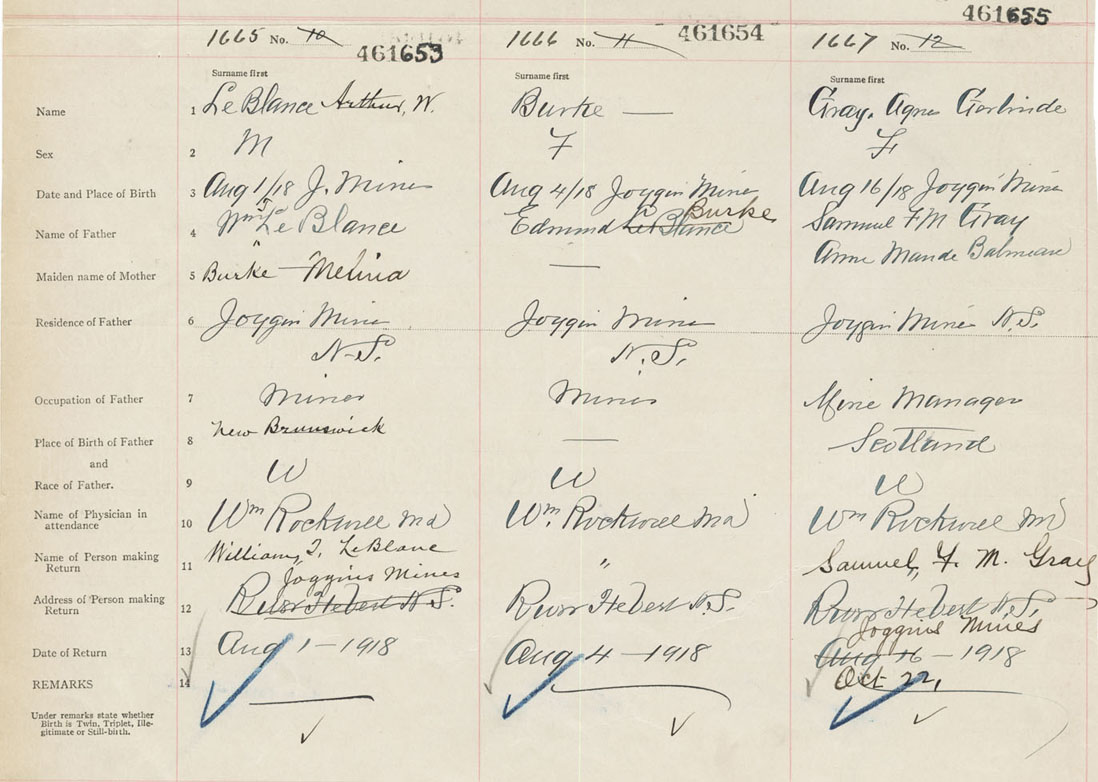 461655
1665 No. 10 461653
1666 No. 11 461654
1667 No. 12
Surname first
Surname first
Surname first
Name 1 LeBlance Arthur, W. Burke — Gray. Agnes Gertrinde
Sex 2 M F F
Date and Place of Birth 3 Aug 1/18 J. Mines Aug 4/18 Joggin Mines Aug 16/18 Joggin Mines
Burke
Name of Father 4 Wm LeBlance Edmund LeBlance Samuel F M Gray
Maiden name of Mother 5 Burke — Melina — Anne Maude
Residence of Father 6 Joggin Mines Joggin Mines Joggin Mines N.S.
N.S. N.S.
Occupation of Father 7 Miner Miner Mine Manager
Place of Birth of Father 8 New Brunswick — Scotland
and
Race of Father. 9 W W W
Name of Physician in
attendance 10 Wm Rockwell Md Wm. Rockwell Md Wm Rockwell Md
Name of Person making
Return 11 William, T, LeBlanc " Samuel, F. M. Gray
Joggins Mines
Address of Person making
Return 12 River Hebert N.S. River Hebert N.S. River Hebert N.S.
Joggins Mines
Date of Return 13 Aug 1 — 1918 Aug 4 — 1918 Aug 16 — 1918
Oct 22,
REMARKS 14
Under remarks state whether
Birth is Twin, Triplet, Ille-
gitimate or Still-birth.